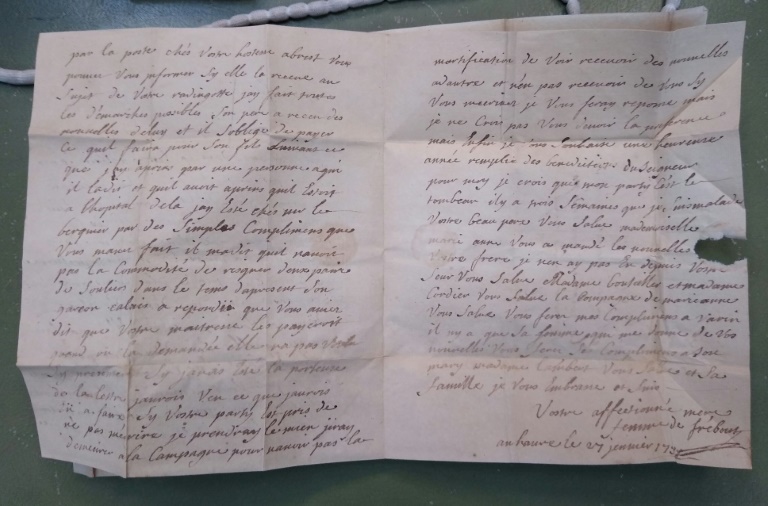 par la poste chés votre hotesse abrest vou
pouvez vous informer sy elle la recue au
sujet de votre redingotte jay fait toutte
les démarches posibles son pere a recu des
nouvelles deluy et il soblige de payer
ce quil faira pour son fils suivant ce
que jay apris par une personne aqui
il ladit et quil avoit apris quil Estoit
a lhopital dela jay Esté chés mr le
berquier par des simples Complimens que
vous mavez fait il madit quil navoit
pas la Commodité de risquer deux paire
de souliers dans le tems dapresent son
garcon calais a repondu que vous aviez
dit que votre maitresse les payeroit
quand on la demandée elle na pas voulu
sy jamais Esté la porteuse
de la lettre jaurois veu ce que jaurois
a faire sy votre party Est pris de
ne pas mécrire je prendray le mien jiray
demeurer a la Campagne pour navoir pas la
mortification de voir recevoir des nouvelles
adautre et nen pas recevoir de vous sy
vous mecrivez je vous feray reponse mais
je ne crois pas vous devoir la preference
mais Enfin je vous souhaite une heureuse
année remplie des benedictions du seigneur
pour moy je crois que mon party Est le
tombeau il y a trois semaines que je suis malade
votre beau pere vous salue mademoiselle
marie anne vous a mandé les nouvelle
votre frere je nen ay pas Eu depuis votre
seur vous salue Madame bouteilles et madame
Cordier vous salue la Compagne de marieanne
vous salue vous ferez mes Complimens a varin
il ny a que sa femme qui me donne de vos
nouvelles vous ferez ses Complimens a son
mary madame Lambert vous salue et sa
famille je vous Embrasse et suis
Votre affectionnée mere
femme de frébourg
auhavre le 27 jenvier 17